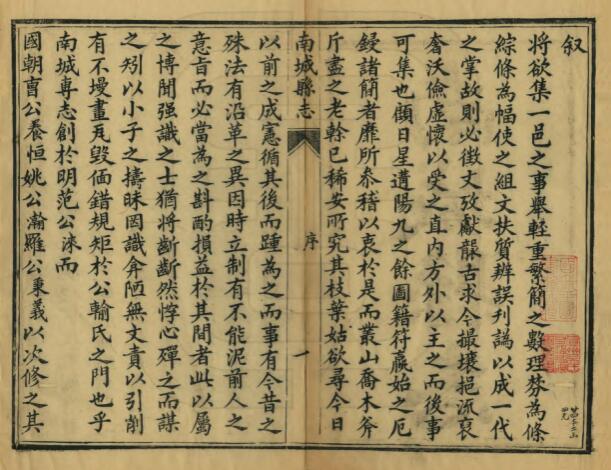 叙
将欲集一邑之事舉輕重繁簡之數理棼為條
綜條為幅使之組文扶質辨誤刊譌以成一代
之掌故則必徴文攷獻龥古求今撮壤挹流裒
奢沃儉虚懷以受之直内方外以主之而後事
可集也顧日星遘陽九之餘圖籍符嬴始之厄
鋟諸簡者靡所叅稽以裒於是而叢山喬木斧
斤盡之老幹已稀安所究其枝葉姑欲尋今日
南城縣志
序
一
以前之成憲循其後而踵為之而事有今昔之
殊法有沿革之異因時立制有不能泥前人之
意旨而必當為之斟酌損益於其間者此以屬
之博聞强識之士猶將斷斷然悖心殫之而謀
之矧以小子之擣昧因識弇陋無文責以引削
有不墁畫瓦毁偭錯規矩於公輸氏之門也乎
南城專志創於明范公淶而
國朝曹公養恒姚公瀚羅公秉義以次修之其